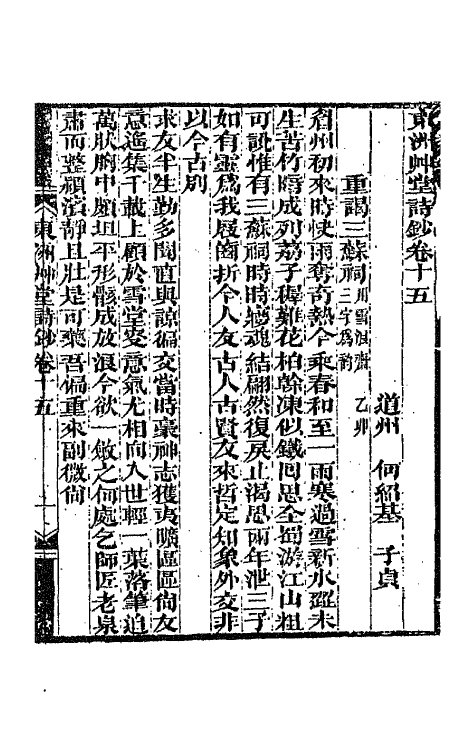 東洲艸堂詩鈔卷十五
道州　何紹基　子貞
重謁三蘇祠 用雪浪齋三字爲韵　乙卯
眉州初來時快雨奪奇熱今乘春和至一雨寒過雪新水澀未
生苦竹陰成列荔子穉雜花柏幹凍似鐵囘思全蜀游江山粗
可說惟有三蘇祠時時夢魂結翩然復戾止渴思兩年泄三子
如有靈爲我屐齒折今人友古人古賢友來哲定知象外交非
以今古別
求友半生勤多聞直與諒偏交當時豪神志獲夷曠區區尙友
意遙集千載上顧於雪堂叟意氣尤相向入世輕一葉落筆追
萬狀胸中頗坦平形骸成放浪今欲一斂之何處乞師匠老泉
肅而整潁濱靜且壯是可藥吾偏重來副微尙
東洲艸堂詩鈔卷十五
一